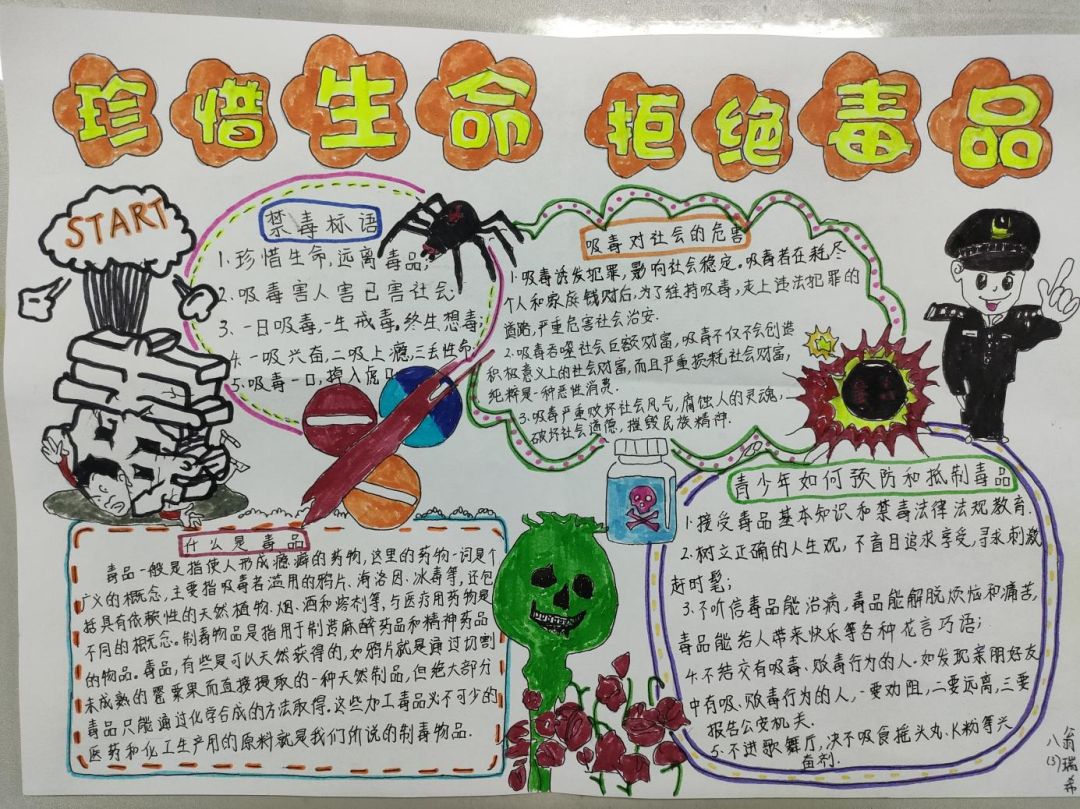 珍惜生命 拒绝毒品
START
禁毒标语
1.珍惜生命,远离毒品;
2.吸毒害人害已害社会
3.一日吸毒,一生戒毒。终生想毒
4.一吸兴奋,二吸上瘾,三丢性命
5.吸毒一口,掉入虎口
吸毒对社会的危害
1.吸毒诱发犯罪,影响社会稳定。吸毒者在耗尽
个人和家庭钱财后,为了维持吸毒,走上违法犯罪的
道路,严重危害社会治安.
2.吸毒吞噬社会巨额财富,吸毒不仅不会创造
积极意义上的社会财富,而且严重损耗社会财富,
纯粹是一种恶性消费.
3.吸毒严重败坏社会风气,腐蚀人的灵魂,
破坏社会道德,摧毁民族精神.
什么是毒品
毒品一般是指使人形成瘾癖的药物,这里的药物一词是个
广义的概念,主要指吸毒者滥用的鸦片、海洛因、冰毒等,还包
括具有依赖性的天然植物、烟、酒和溶剂等,与医疗用药物是
不同的概念。制毒物品是指用于制造麻醉药品和精神药品
的物品。毒品,有些是可以天然获得的,如鸦片就是通过切割
未成熟的罂粟果而直接提取的一种天然制品,但绝大部分
毒品只能通过化学合成的方法取得。这些加工毒品必不可少的
医药和化工生产用的原料就是我们所说的制毒物品.
青少年如何预防和抵制毒品
1.接受毒品基本知识和禁毒法律法规教育.
2.树立正确的人生观,不盲目追求享受,寻求刺激
赶时髦;
3.不听信毒品能治病,毒品能解脱烦恼和痛苦,
毒品能给人带来快乐等各种花言巧语;
4.不结交有吸毒、贩毒行为的人.如发现亲朋好友
中有吸、贩毒行为的人,一要劝阻,二要远离,三要
报告公安机关.
5.不进歌舞厅,决不吸食摇头丸、K粉等兴
奋剂.
八(3)
翁瑞希